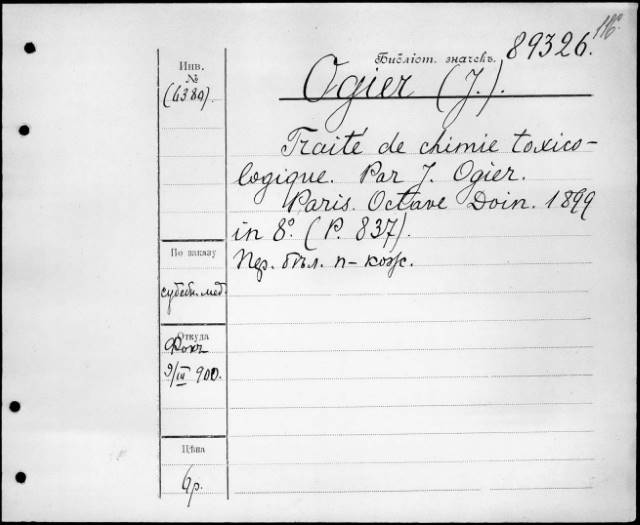 Библіот. значекъ. 89326.
Инв.
№
(6380).
Ogier (J.).
Traité de chimie toxico-
logique. Par J. Ogier.
Paris. Octave Doin. 1899
in 8º. (P. 837).
Пер. бѣл. п-кож.
По заказу
судебн. мед.
Откуда
9/III 900.
Цѣна
р.